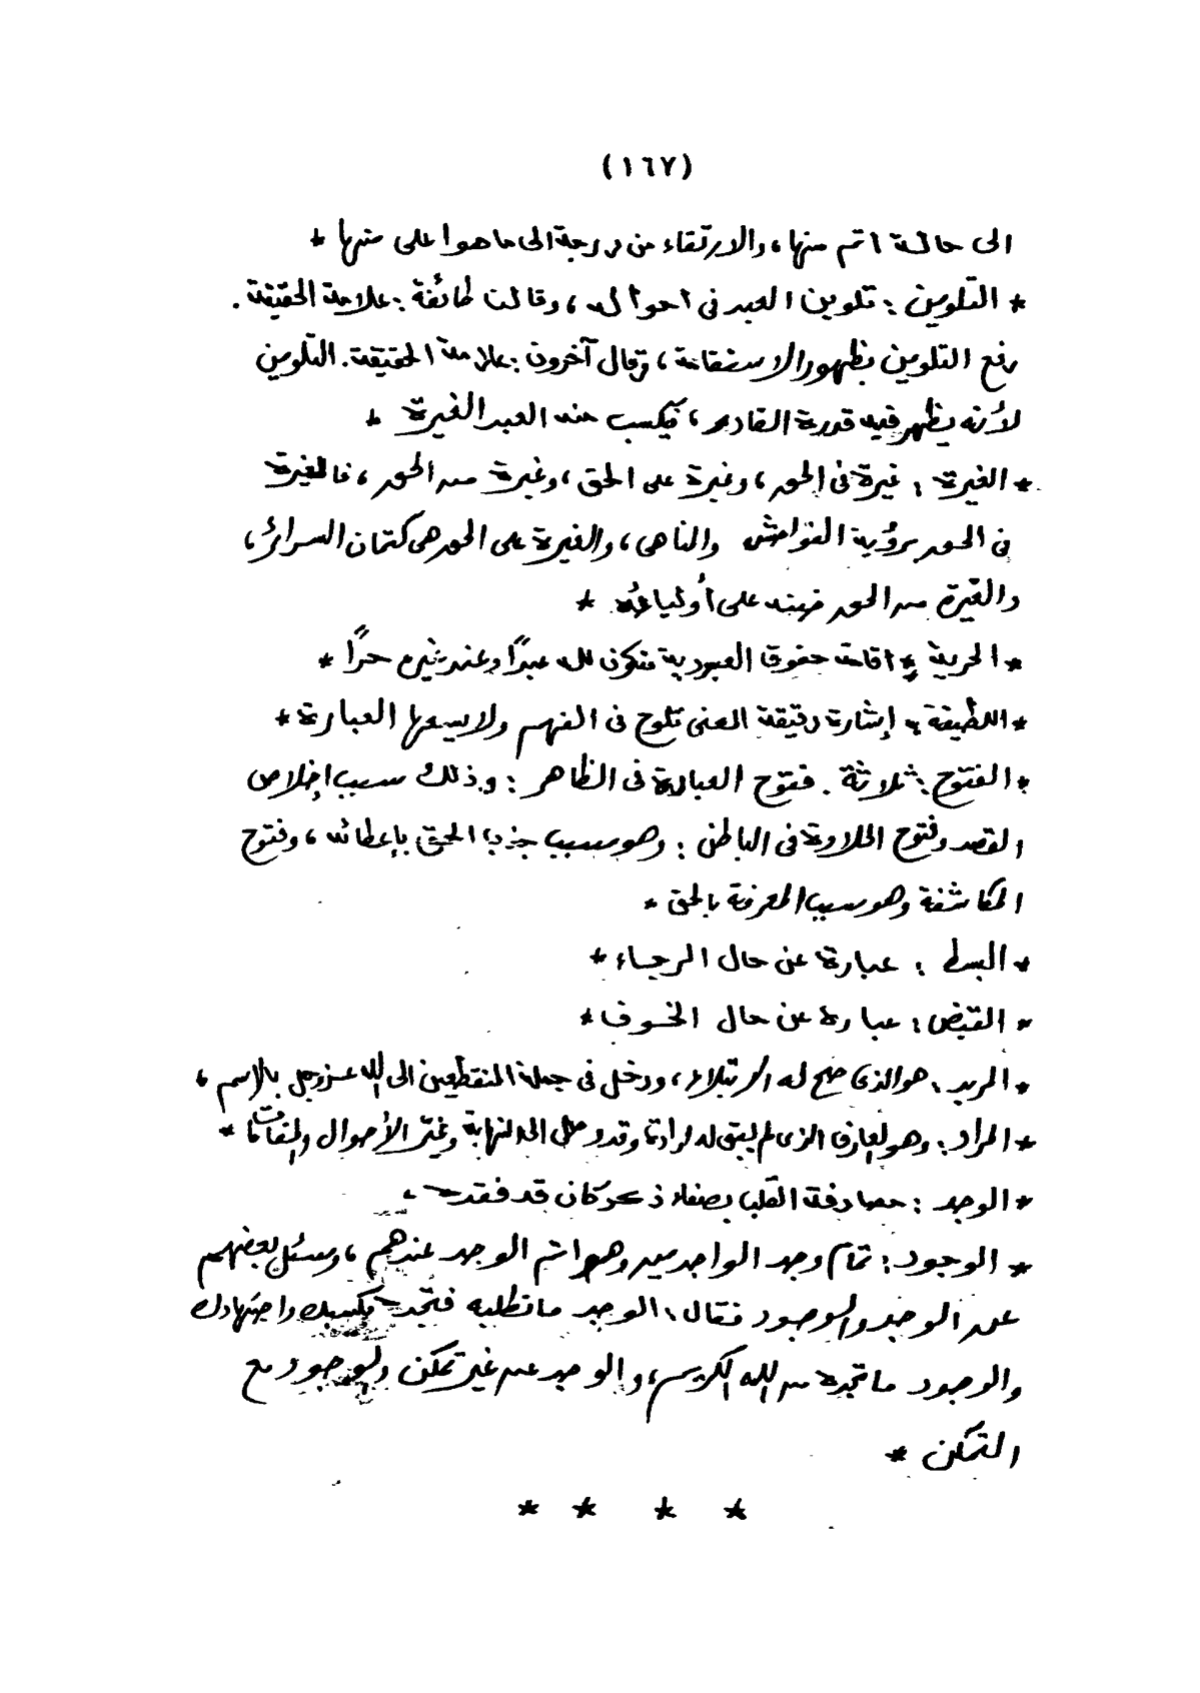 (١٦٧)
الى حالة اتم منها، والارتقاء من درجة الى ما هوا على منها *
* التلوين : تلوين العبد فى احواله ، وقالت طائفة : علامة الحقيقة .
رفع التلوين بظهور الاستقامة ، وقال آخرون : علامة الحقيقة . التلوين
لأنه يظهر فيه قدرة القادر ، فيكسب منه العبد الغيرة *
* الغيرة : غيرة فى الحق ، وغيرة على الحق ، وغيرة من الحق ، فالغيرة
فى الحق برؤية الفواحش والناهى ، والغيرة على الحق هى كتمان السرائر ،
والغيرة من الحق ضنه على أوليائه *
* الحرية : اقامة حقوق العبودية فتكون لله عبدًا وعند غيره حرًا *
* اللطيفة : إشارة دقيقة المعنى تلوح فى الفهم ولا يسعها العبارة *
* الفتوح : ثلاثة . فتوح العبادة فى الظاهر : وذلك سبب اخلاص
القصد وفتوح الحلاوة فى الباطن : وهو سبب جذب الحق بإعطائه ، وفتوح
المكاشفة وهو سبب المعرفة بالحق *
* البسط : عبارة عن حال الرجاء *
* القبض : عبارة عن حال الخوف *
* المريد : هو الذى صح له الابتلاء ، ودخل فى جملة المنقطعين الى الله عز وجل بالاسم ،
* المراد : وهو العارف الذى لم يبق له ارادة وقد وصل الى النهاية وغير الأحوال والمقامات *
* الوجد : مصادفة القلب بصفاء ذكر كان قد فقده ،
* الوجود : تمام وجد الواجدين وهو اتم الوجد عندهم ، وسئل بعضهم
عن الوجد والوجود فقال : الوجد ما تطلبه فتجده بكسبك واجتهادك
والوجود ما تجده من الله الكريم ، والوجد عن غير تمكن والوجود مع
التمكن *
* * * *